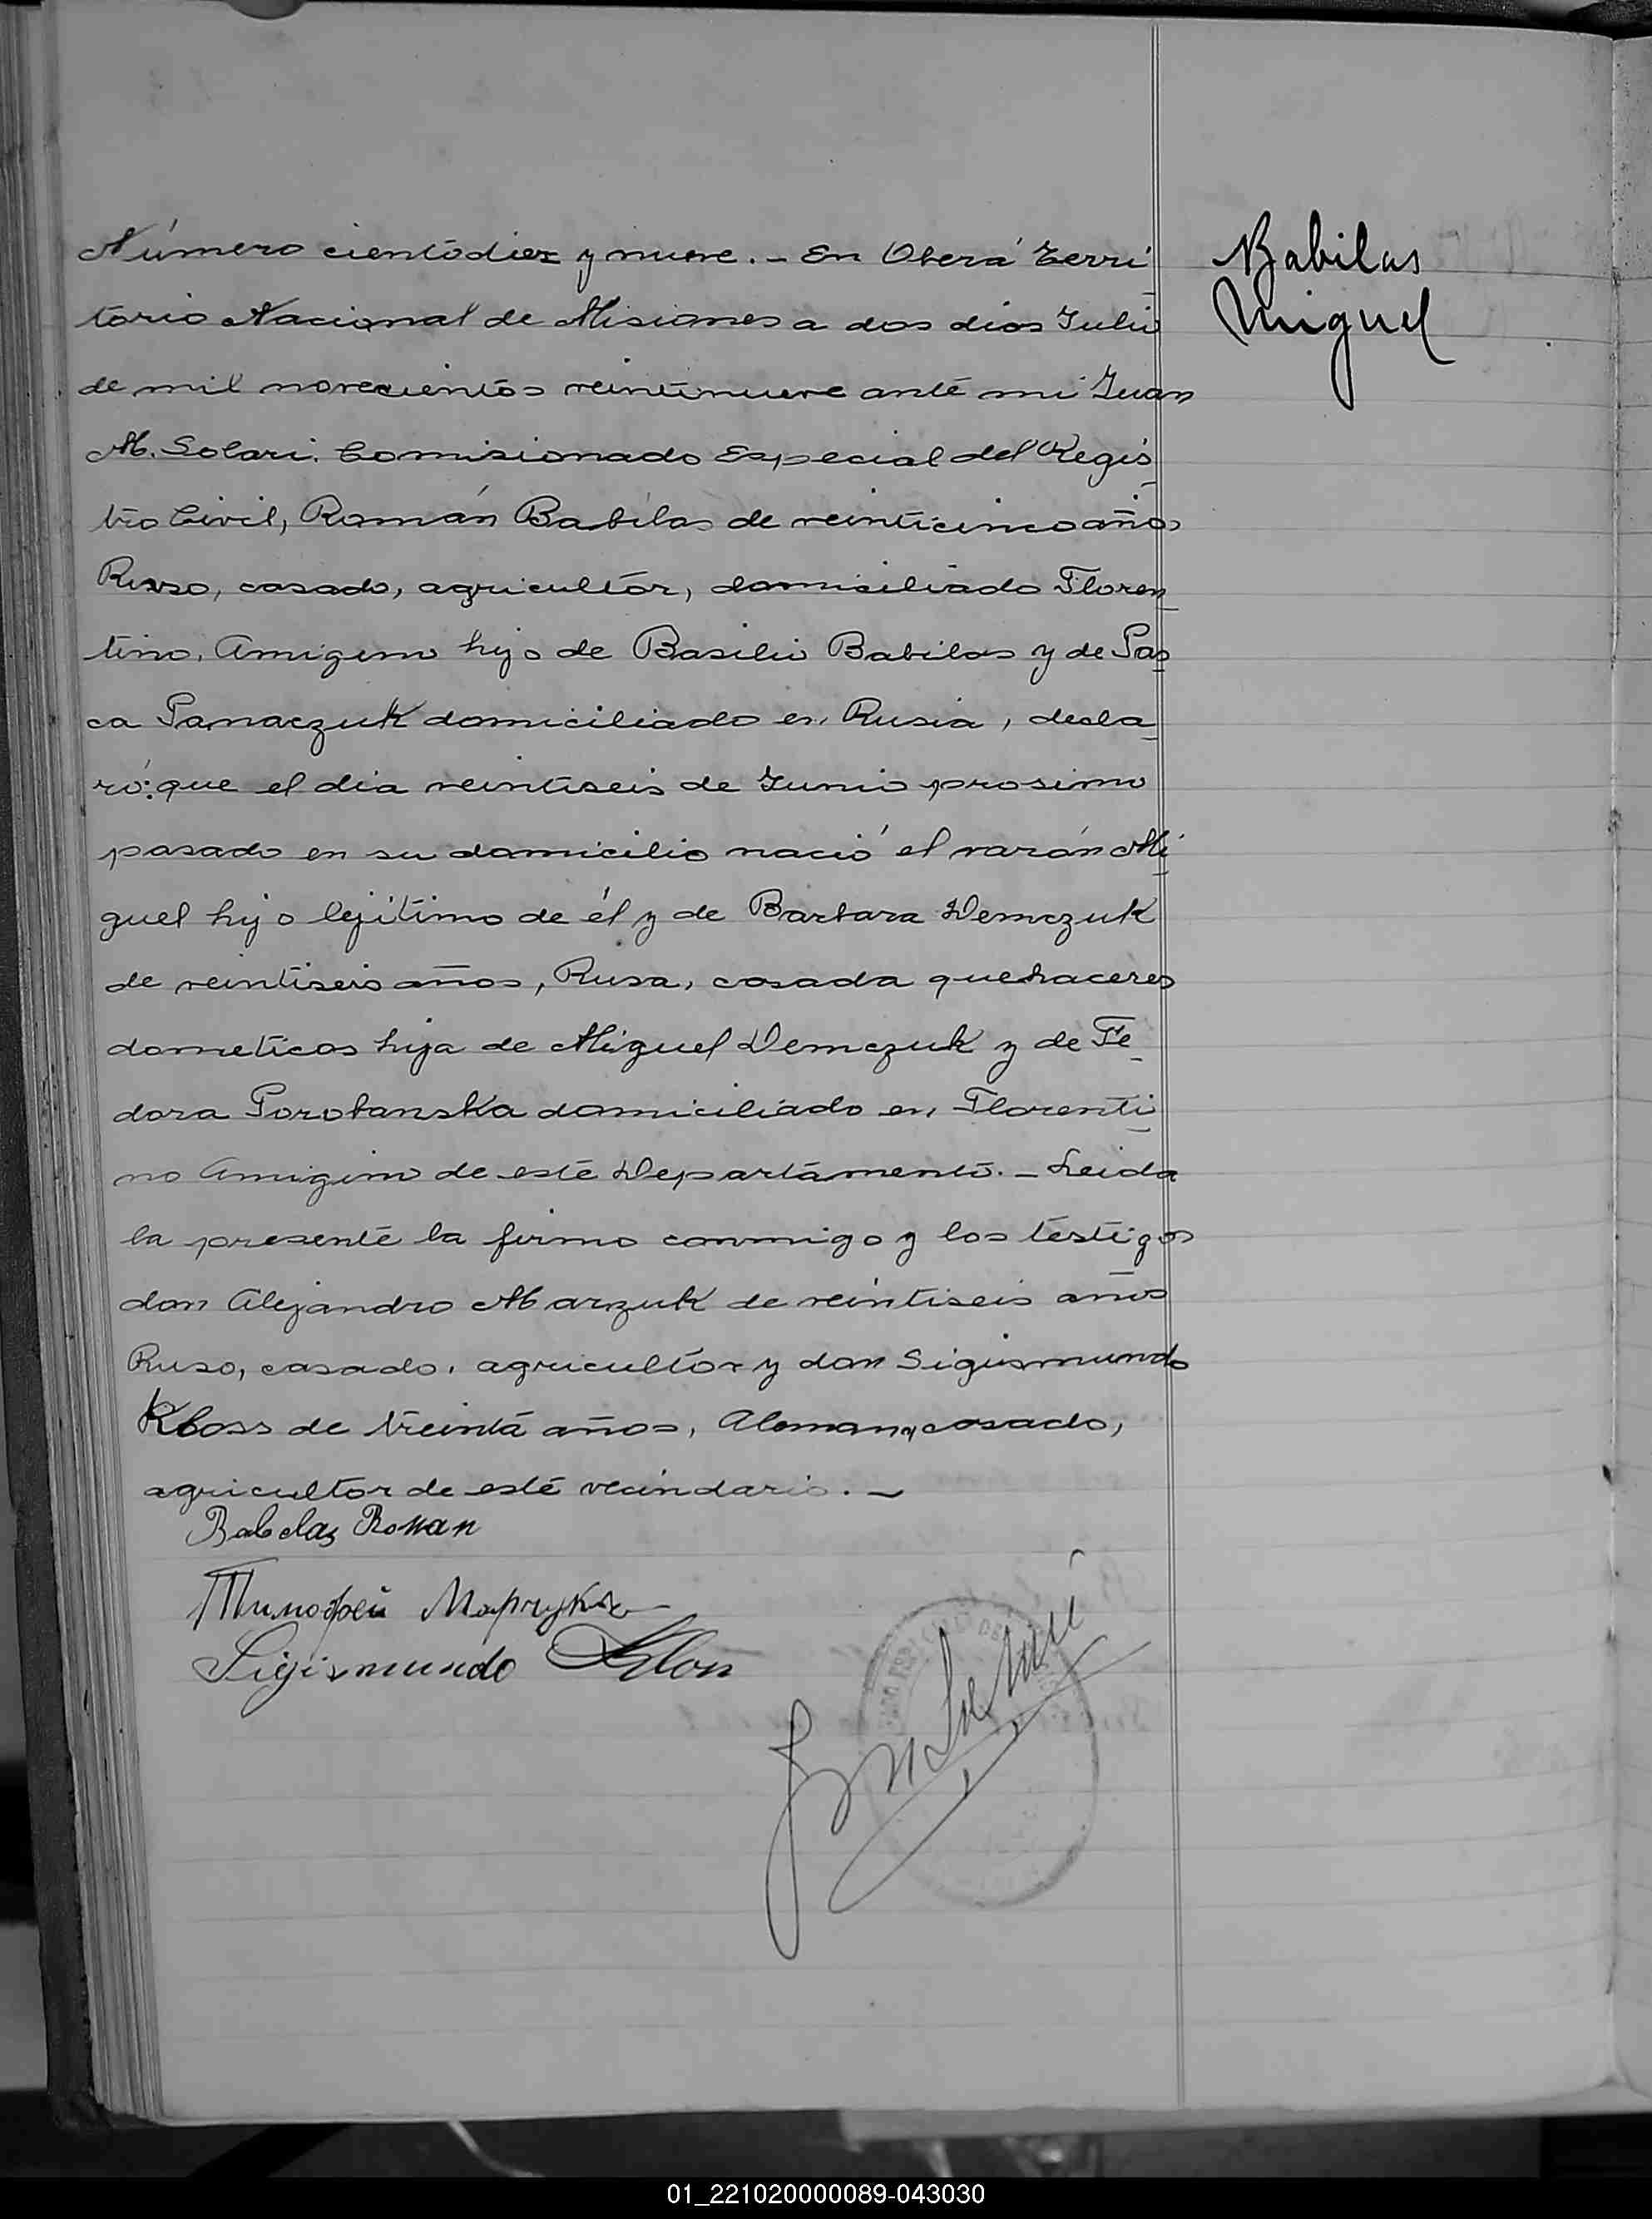 Número cientodiez y nueve. - En Oberá Terri_
torio Nacional de Misiones a dos dias Julio
de mil novecientos veintinueve ante mi Juan
M. Solari. Comisionado Especial del Regis_
tro Civil, Román Babilas de veinticinco años
Ruso, casado, agricultor, domiciliado Floren_
tino, Amigeno hijo de Basilio Babilas y de Pas_
ca Panaczuk domiciliado en Rusia, decla_
ró: que el dia veintiseis de Junio prosimo
pasado en su domicilio nació el varón Mi_
guel hijo lejitimo de él y de Barbara Demczuk
de veintiseis años, Rusa, casada quehaceres
dometicos hija de Miguel Demczuk y de Fe_
dora Porobanska domiciliado en Florenti_
no Amigino de este Departamento. - Leida
la presente la firmo conmigo y los testigos
don Alejandro Marzuk de veintiseis años
Ruso, casado, agricultor y don Sigismundo
Kloss de treinta años, Aleman, casado,
agricultor de este vecindario. -
Babelas Roman
Тимофей Марчукъ
Sigismundo Kloss
Babilas
Miguel
01_221020000089-043030